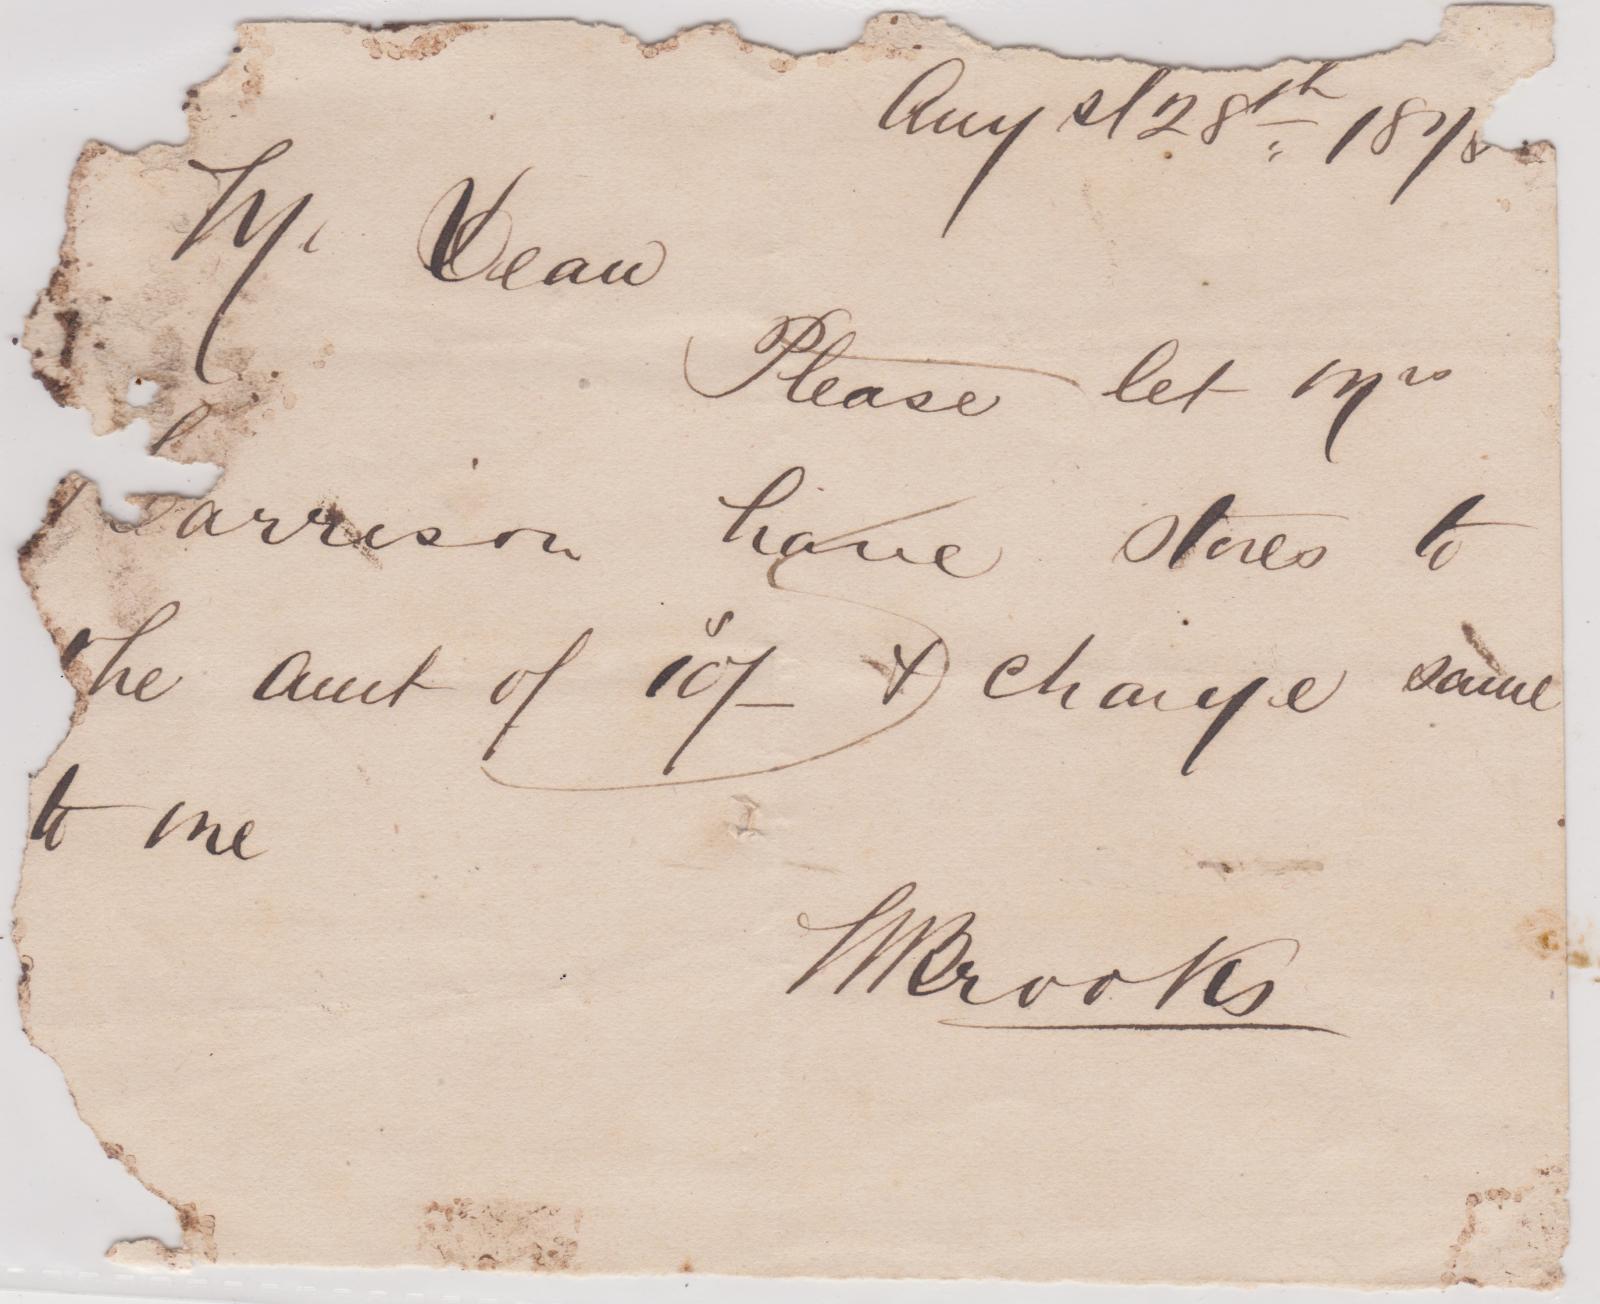 Augst 28th 1878
Mr Dean
Please let Mrs
arrison have stores to
the amt of 10s/- & charge same
to me
WBrooks